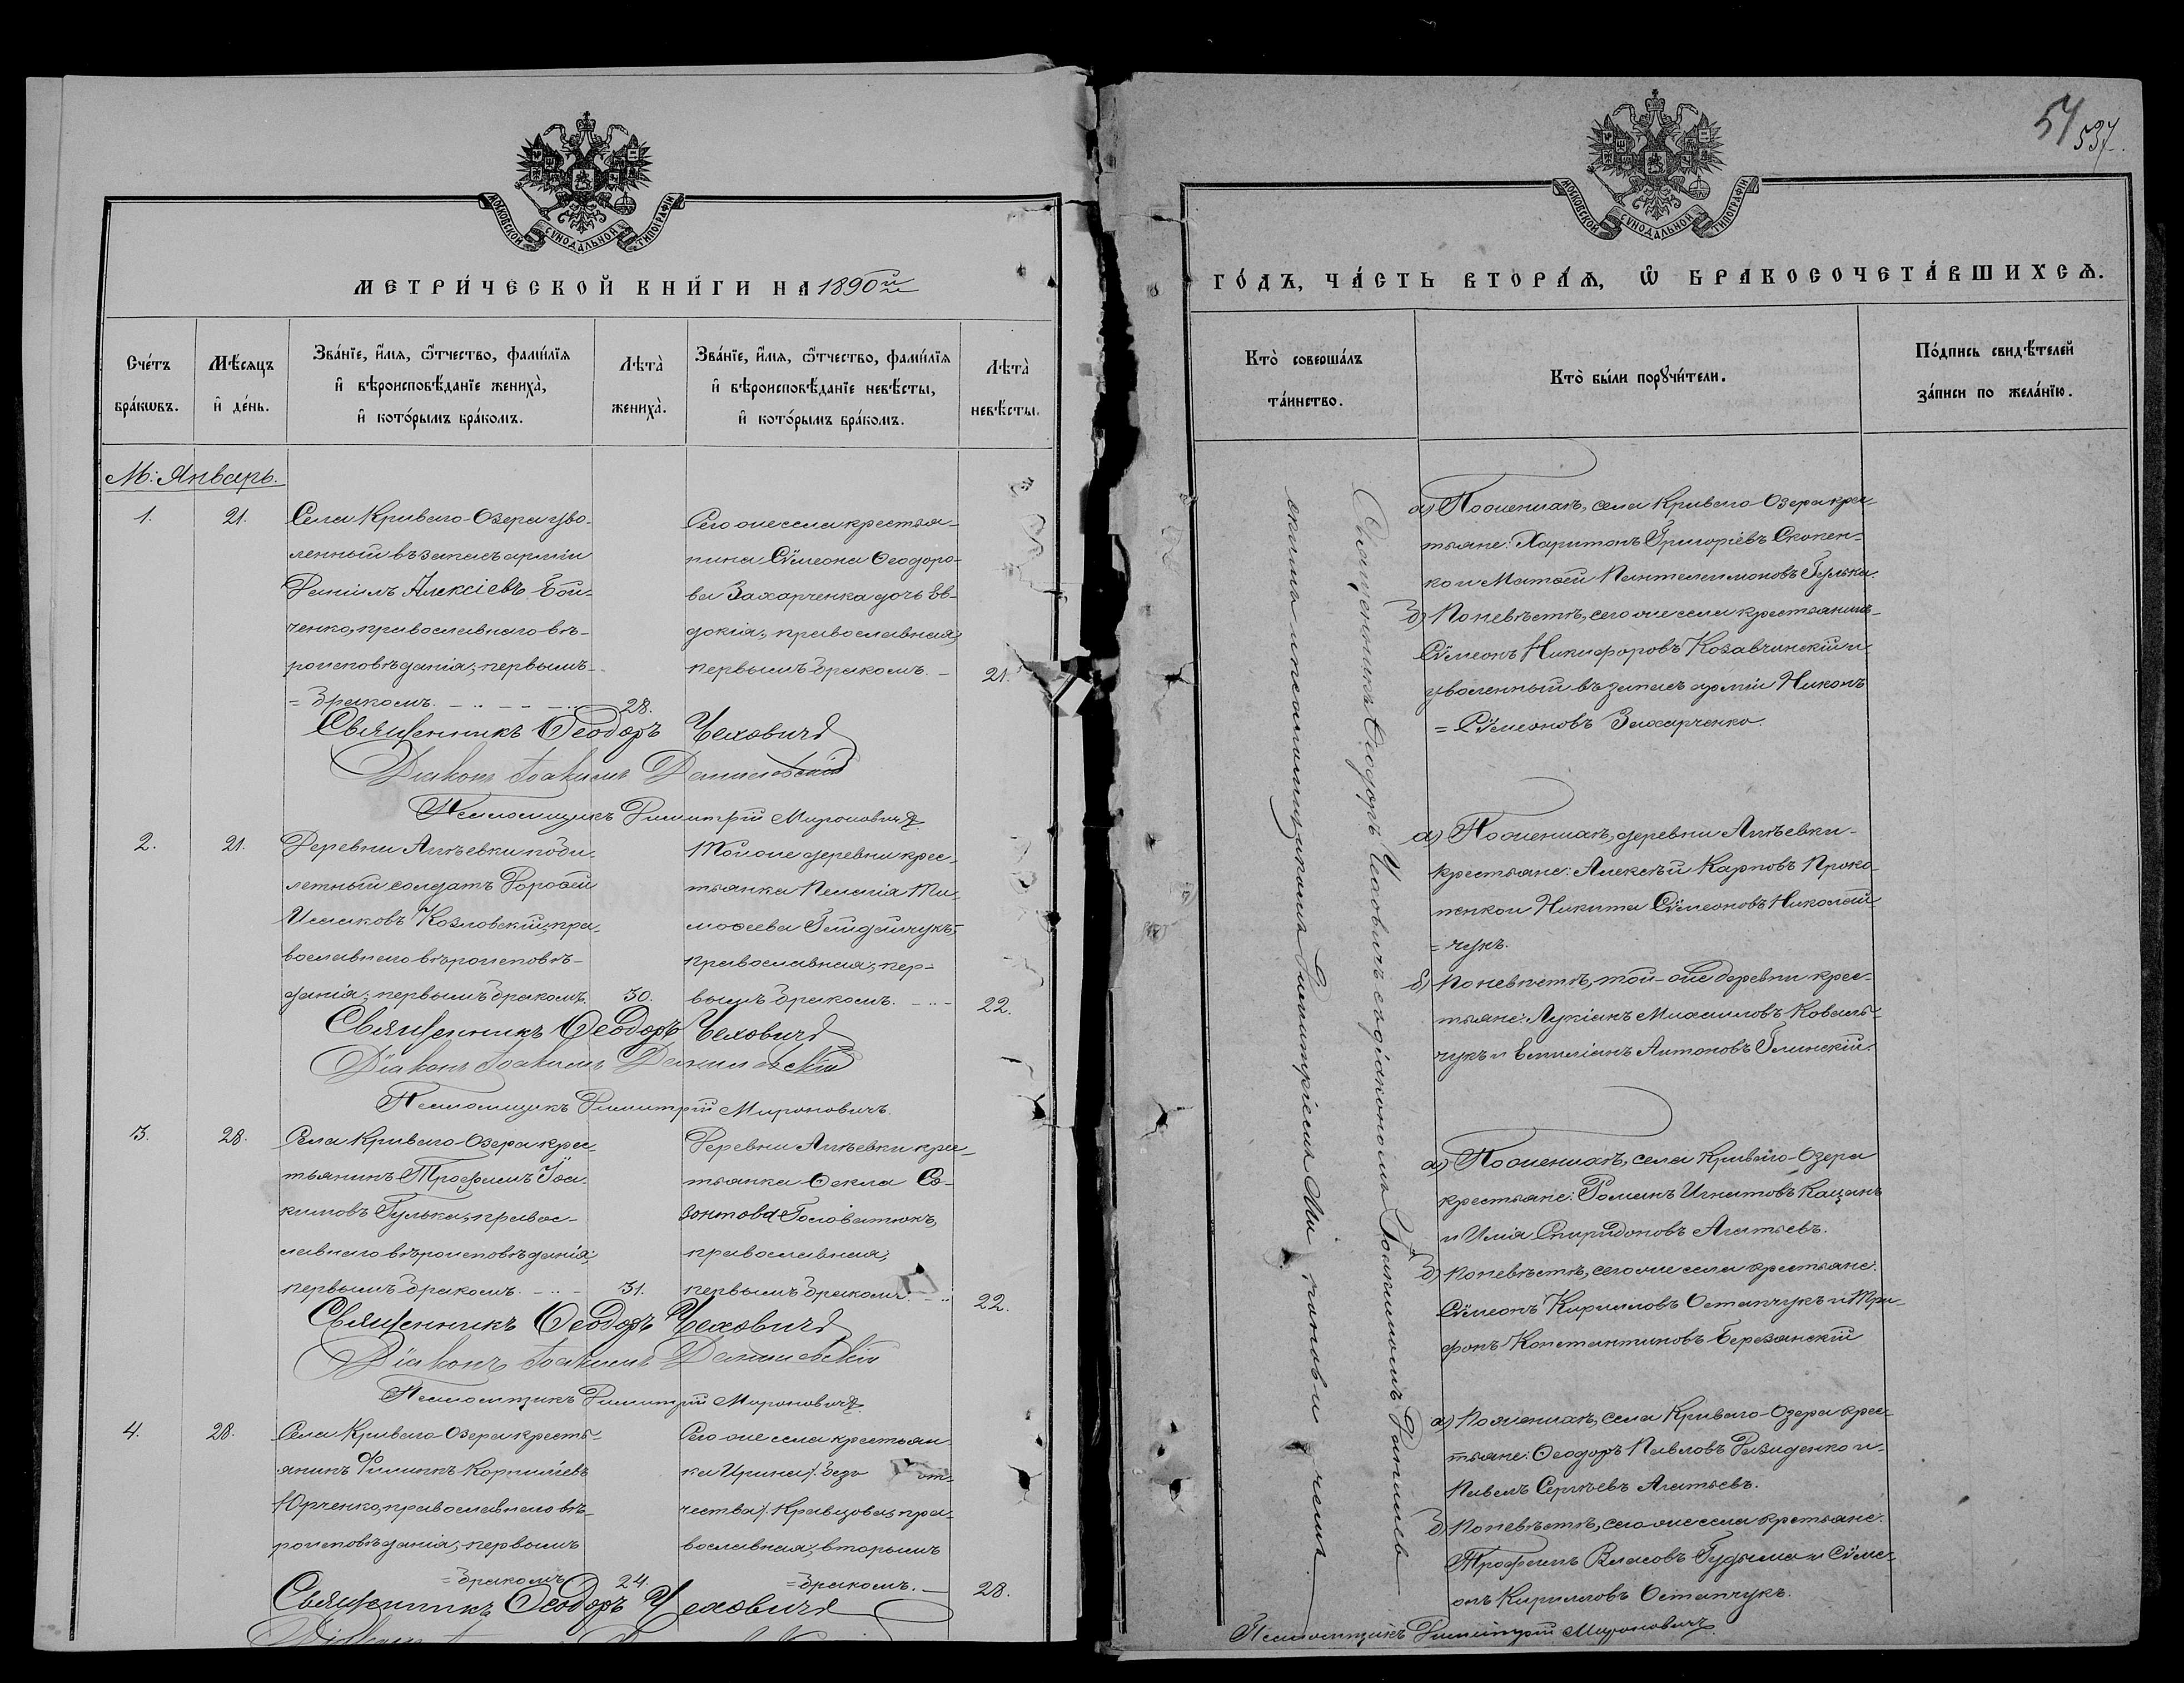 МОСКОВСКОЙ СѴНОДАЛЬНОЙ ТИПОГРАФІИ
МЕТРИ́ЧЕСКОЙ КНИ́ГИ НА 1890й
Сче́тъ бра́кѡвъ.
Мѣ́сяцъ и҆ де́нь.
Зва́нїе, и҆́мѧ, ѻ҆́тчество, фами́лїѧ
и҆ вѣроисповѣ́данїе жениха̀,
и҆ кото́рымъ бра́комъ.
Лѣта̀ жениха̀.
Зва́нїе, и҆́мѧ, ѻ҆́тчество, фами́лїѧ
и҆ вѣроисповѣ́данїе невѣ́сты,
и҆ кото́рымъ бра́комъ.
Лѣта̀ невѣ́сты.
М: Январь.
1. 21.
Села Криваго-Озера уво-
ленный въ запасъ арміи
Даніилъ Алексіевъ Бой-
ченко, православнаго вѣ-
роисповѣданія, первымъ
= бракомъ.
28.
Сего же села крестья-
нина Сѵмеона Ѳеодоро-
ва Захарченка дочь Ев-
докія, православная,
первымъ бракомъ.
21.
Священникъ Ѳеодоръ Чеховичъ
Діаконъ Іоакимъ Данилевскій
Псаломщикъ Димитрій Мироновичъ
2. 21.
Деревни Алѣевки
летный солдатъ Дороѳей
Исааковъ Козловскій, пра-
вославнаго вѣроисповѣ-
данія, первымъ бракомъ.
30.
Той же деревни крес-
тьянка Пелагія Ти-
моѳеева Гайдайчукъ,
православная, пер-
вымъ бракомъ.
22.
Священникъ Ѳеодоръ Чеховичъ
Діаконъ Іоакимъ Данилевскій
Псаломщикъ Димитрій Мироновичъ.
3. 28.
Села Криваго-Озера крес-
тьянинъ Трофимъ Іоа-
кимовъ Гулька, правос-
лавнаго вѣроисповѣданія,
первымъ бракомъ.
31.
Деревни Алѣевки крес-
тьянка Ѳекла Со-
зонтова Головатюкъ,
православная,
первымъ бракомъ.
22.
Священникъ Ѳеодоръ Чеховичъ
Діаконъ Іоакимъ Данилевскій
Псаломщикъ Димитрій Мироновичъ
4. 28.
Села Криваго-Озера кресть-
янинъ Филиппъ Корнилiевъ
Юрченко, православнаго вѣ-
роисповѣданія, первымъ
= бракомъ.
24.
Сего же села крестьян-
ка Ирина /безъ от-
чества/ Кравцова, пра-
вославная, вторымъ
= бракомъ.
28.
Священникъ Ѳеодоръ Чеховичъ
54
537.
МОСКОВСКОЙ СѴНОДАЛЬНОЙ ТИПОГРАФІИ
ГО́ДЪ, ЧА́СТЬ ВТОРА́Ѧ, Ѽ БРАКОСОЧЕТА́ВШИХСѦ.
Кто̀ соверша́лъ
та́инство.
Кто̀ бы́ли порꙋчи́тели.
По́дпись свидѣ́телей
за́писи по жела́нїю.
Священникъ Ѳеодоръ Чеховичъ съ діакономъ Іоакимомъ Данилев-
скимъ и псаломщикомъ Димитріемъ Ми роновичемъ.
а) По женихѣ, села Криваго-Озера крес-
тьяне: Харитонъ Григоріевъ Скопен-
ко и Матѳей Пантелеимоновъ Гулька.
б) По невѣстѣ, сего же села крестьянинъ
Сѵмеонъ Никифоровъ Козавчинскій и
уволенный въ запасъ арміи Никонъ
= Сѵмеоновъ Захарченко.
а) По женихѣ, деревни Алѣевки
крестьяне: Алексѣй Карповъ Проко-
пенко и Никита Сѵмеоновъ Николай-
= чукъ.
б) По невѣстѣ, той-же деревни крес-
тьяне: Лукіанъ Михаиловъ Коваль-
чукъ и Емиліанъ Антоновъ Глинскій.
а) По женихѣ, села Криваго-Озера
крестьяне: Романъ Игнатовъ Кацанъ
и Илія Спиридоновъ Агатьевъ.
б) По невѣстѣ, сего же села крестьяне:
Сѵмеонъ Кирилловъ Остапчукъ и Три-
фонъ Константиновъ Березанскій
а) По женихѣ, села Криваго-Озера крес-
тьяне: Ѳеодоръ Павловъ Давиденко и
Павелъ Сергѣевъ Агатьевъ.
б) По невѣстѣ, сего же села крестьяне:
Трофимъ Власовъ Гудыма и Сѵме-
онъ Кирилловъ Остапчукъ.
Псаломщикъ Димитрій Мироновичъ.